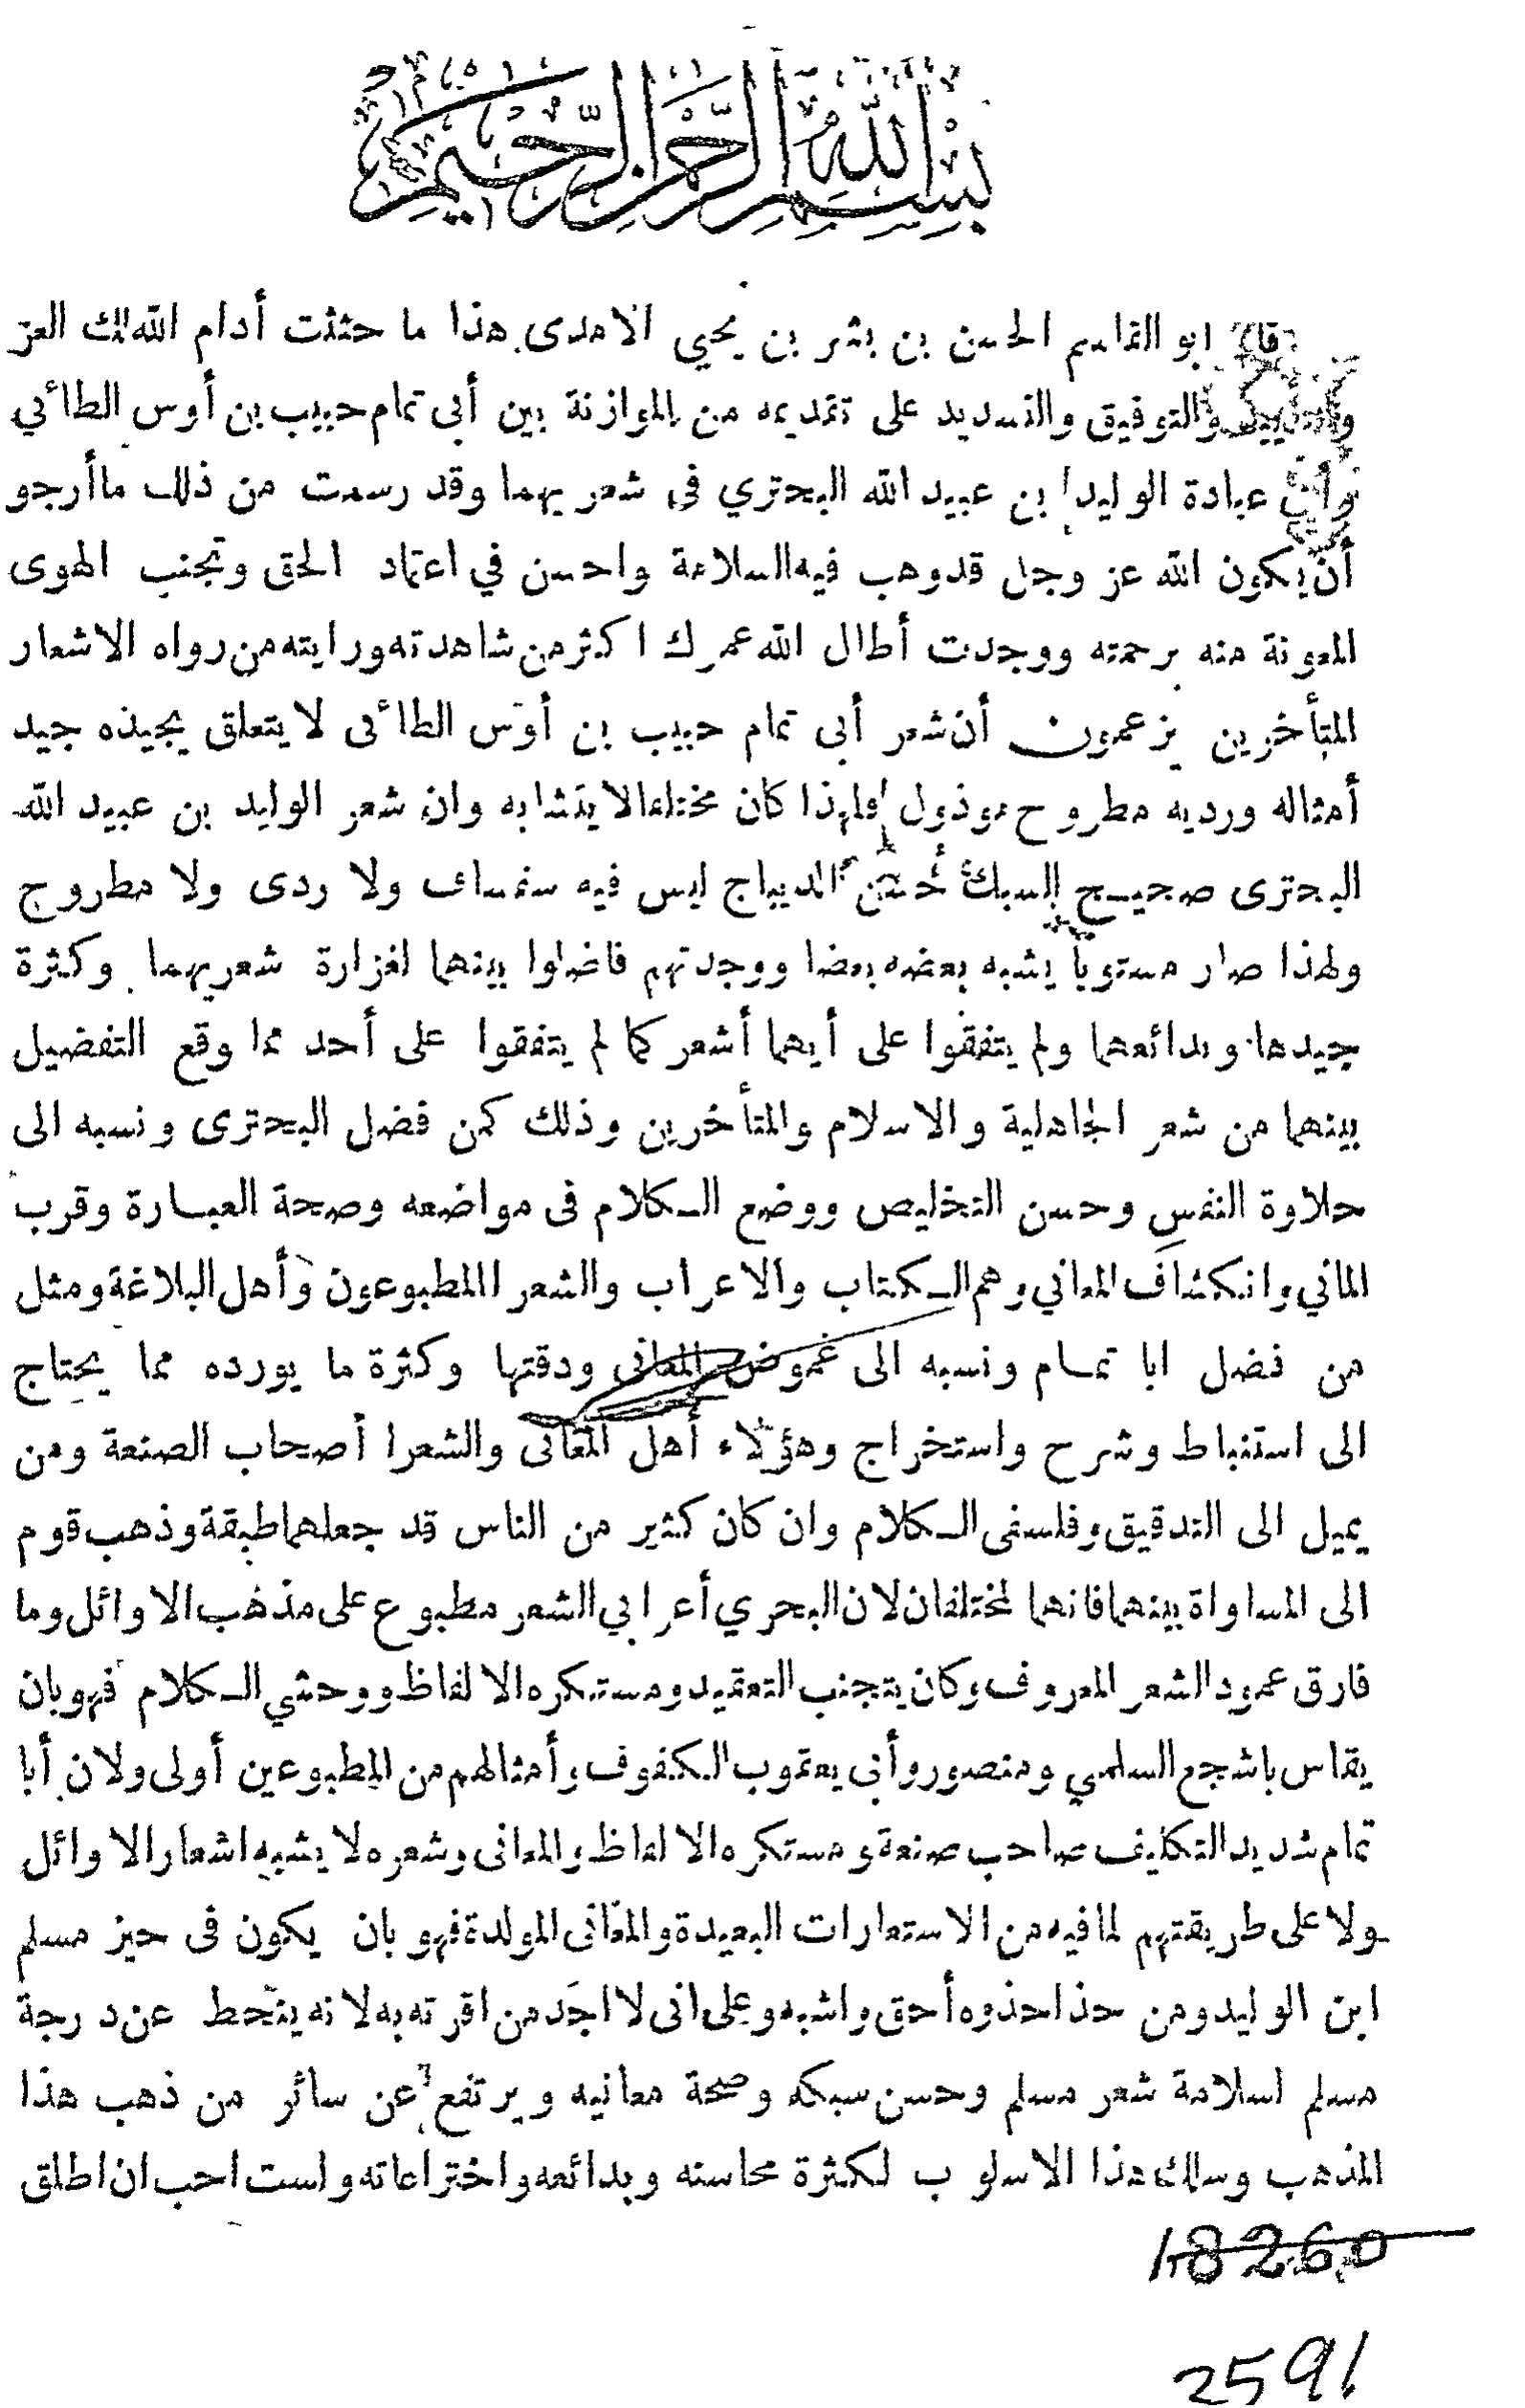 بسم الله الرحمن الرحيم
قال ابو القاسم الحسن بن بشر بن يحيي الامدى هذا ما حثثت أدام الله لك العز
والتأييد والتوفيق والتسديد على تقديمه من الموازنة بين أبي تمام حبيب بن أوس الطائي
وأبي عبادة الوليد ابن عبيد الله البحتري في شعريهما وقد رسمت من ذلك ماأرجو
أن يكون الله عز وجل قدوهب فيه السلامة واحسن في اعتماد الحق وتجنب الهوى
المعونة منه برحمته ووجدت أطال الله عمرك اكثر من شاهدته ورايته من رواه الاشعار
المتأخرين يزعمون أن شعر أبي تمام حبيب بن أوس الطائي لا يتعلق بجيذه جيد
أمثاله ورديه مطروح موذول فلهذا كان مختلفا لا يتشابه وان شعر الوليد بن عبيد الله
البحترى صحيح السبك حسن الديباج ليس فيه سفساف ولا ردى ولا مطروح
ولهذا صار مستويا يشبه بعضه بعضا ووجدتهم فاضلوا بينهما لغزارة شعريهما وكثرة
جيدها وبدائعهما ولم يتفقوا على أيهما أشعر كما لم يتفقوا على أحد مما وقع التفضيل
بينهما من شعر الجاهلية والاسلام والمتأخرين وذلك كمن فضل البحترى ونسبه الى
حلاوة النفس وحسن التخليص ووضع الكلام فى مواضعه وصحة العبارة وقرب
الماني وانكشاف المعاني وهم الكتاب والاعراب والشعر االمطبوعون وأهل البلاغة ومثل
من فضل ابا تمام ونسبه الى غموض المعانى ودقتها وكثرة ما يورده مما يحتاج
الى استنباط وشرح واستخراج وهؤلاء أهل المعانى والشعرا أصحاب الصنعة ومن
يميل الى التدقيق وفلسفى الكلام وان كان كثير من الناس قد جعلهما طبقة وذهب قوم
الى المساواة بينهما فانهما لمختلفان لان البحري أعرابي الشعر مطبوع على مذهب الاوائل وما
فارق عمود الشعر المعروف وكان يتجنب التعقيد ومستكره الالفاظ ووحشي الكلام فهو بان
يقاس باشجع السلمي ومنصور وأبي يعقوب الكفوف وأمثالهم من المطبوعين أولى ولان أبا
تمام شديد التكليف صاحب صنعة ومستكره الالفاظ والمعانى وشعره لا يشبه اشعار الاوائل
ولا على طريقتهم لما فيه من الاستعارات البعيدة والمعانى المولدة فهو بان يكون فى حيز مسلم
ابن الوليد ومن حذا حذوه أحق واشبه وعلى انى لا اجد من اقرته به لانه ينحط عن درجة
مسلم لسلامة شعر مسلم وحسن سبكه وصحة معانيه ويرتفع عن سائر من ذهب هذا
المذهب وسلك هذا الاسلوب لكثرة محاسنه وبدائعه واختراعاته ولست احب ان اطلق
18260
2591